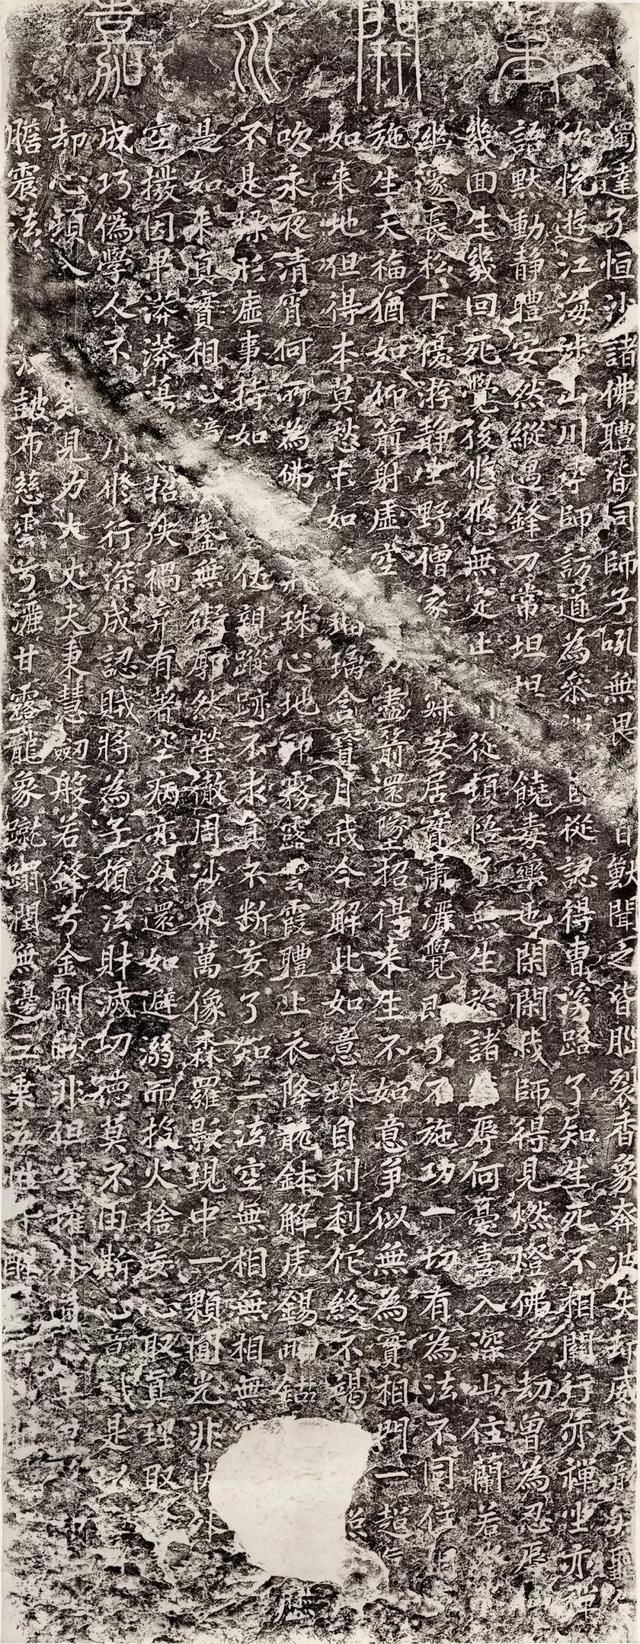 開永嘉
獨達了恒沙諸佛體皆同師子吼無畏百獸聞之皆腦裂香象奔波失却威天龍寂聽
欣悅遊江海涉山川尋師訪道為叅自從認得曹溪路了知生死不相關行亦禪坐亦禪
語默動靜體安然縱遇鋒刀常坦坦饒毒藥也閑閑我師得見燃燈佛多劫曾為忍辱
幾回生幾回死覺後悠悠無定止從頓悟了無生於諸榮辱何憂喜入深山住蘭若
幽邃長松下優游靜坐野僧家寂安居實蕭灑覺即了不施功一切有為法不同住相
施生天福猶如仰箭射虛空盡箭還墜招得來生不如意爭似無為實相門一超
如来地但得本莫愁末如瑠璃含寶月我今解此如意珠自利利佗終不竭
吹永夜清宵何所為佛戒珠心地印霧露雲霞體上衣降龍鉢解虎錫兩鈷
不是摽形虛事持如仗親蹤跡不求真不斷妄了知二法空無相無相無
是如来真實相心鏡鑒無碍廓然瑩徹周沙界萬像森羅影現中一顆圓光非內外
空撥因果漭漭蕩招殃禍棄有著空病亦然還如避溺而投火捨妄心取真理取
成巧偽學人不用修行深成認賊將為子損法財滅功德莫不由斯心意識是以
却心頓入知見力大丈夫秉慧劒般若鋒兮金剛焰非但空摧外
膽震法鼓布慈雲兮灑甘露龍象蹴蹋潤無邊三乘五性醒